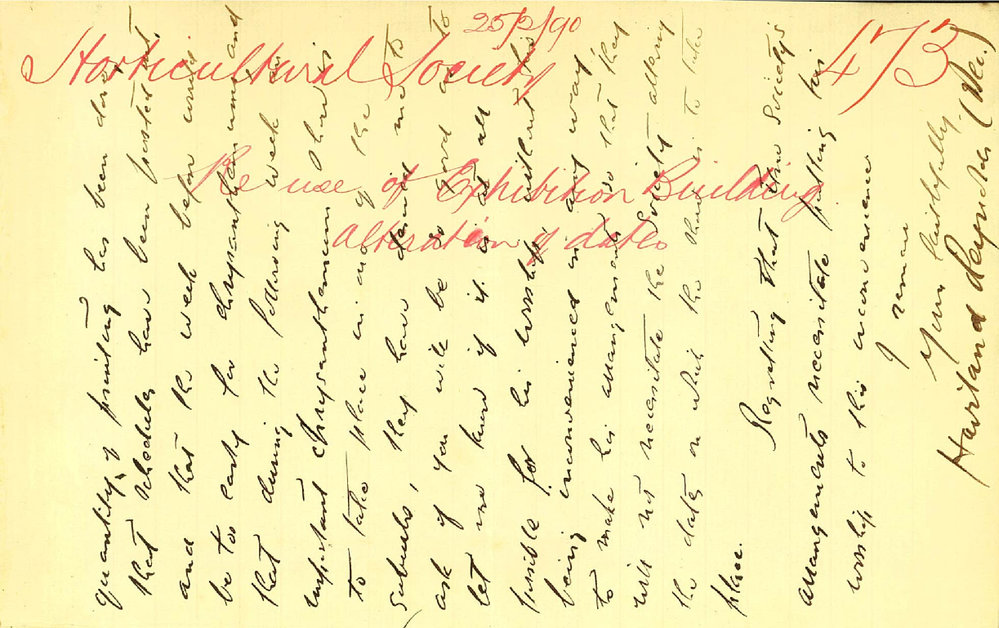 25/2/90
Horticultural Society
473
Re use of Exhibition Building
Alteration of dates
quantity of printing has been done,
that schedules have been posted out,
and that the week before would
be too early for chrysanthemums and
that during the following week an
important Chrysanthemum Show is
to take place in one of the
suburbs, they have desired me to
ask if you will be so good as to
let me know if it is at all
possible for his worship, without his
being inconvenienced in any way,
to make his arrangements so that they
will not necessitate the Society altering
the dates on which the Show is to take
place.
Regretting that the Society's
arrangements necessitate putting his
worship to this inconvenience
I remain
Yours faithfully,
Haviland